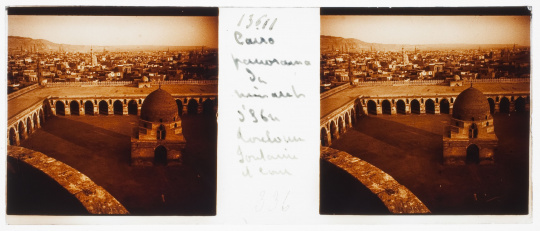 13511
Cairo
panorama
du
minaret
d'Ibn
Touloun
fontaine
et cour
836